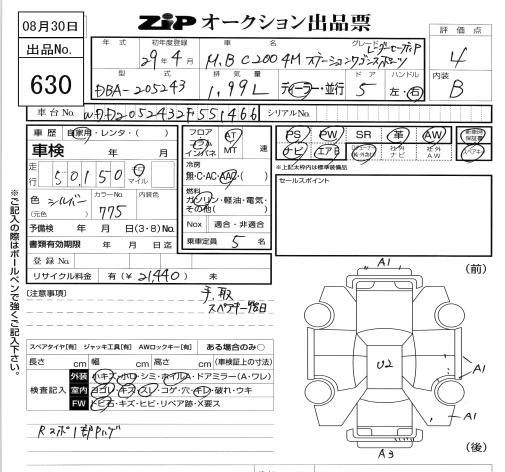 08月30日
ZIP オークション出品票
出品No.
630
年式 初年度登録 車名 グレード
29年4月 M.B C200 4M ステーションワゴンスポーツ レーダーセーフティP
型式 排気量 ドア ハンドル
DBA-205243 1.99L ディーラー・並行 5 左・右
評価点
4
内装
B
車台No. WDD2052432F551466 シリアルNo.
車歴 自家用・レンタ・( )
車検 年 月
走行 50,150 キロ マイル
色 シルバー カラーNo. 内装色
(元色) 775
予備検 年 月 日(3・8)No.
書類有効期限 年 月 日迄
登録No.
リサイクル料金 有(¥21,440) 未
フロア コラム インパネ AT MT 速
冷房
無・C・AC・AAC・( )
燃料
ガソリン・軽油・電気・その他( )
Nox 適合・非適合
乗車定員 5 名
PS PW SR 革 AW 新車時保証書
ナビ エアB 社外ナビ 社外AW スペアキー
*上記太枠内は標準装備品
セールスポイント
※ご記入の際はボールペンで強くご記入下さい。
[注意事項]
手、取
スペアキー後日
スペアタイヤ[有] ジャッキ工具[有] AWロックキー[有] ある場合のみ○
長さ cm 幅 cm 高さ cm (車検証上の寸法)
検査記入
外装 小キズ・小凹・シミ・ホイルA・ドアミラー(A・ワレ)
室内 ヨゴレ・キズ・スレ・コゲ・穴・キレ・破れ・ウキ
FW トビ石・キズ・ヒビ・リペア跡・X要ス
(前)
A1
U2
A1
A1
A3
(後)